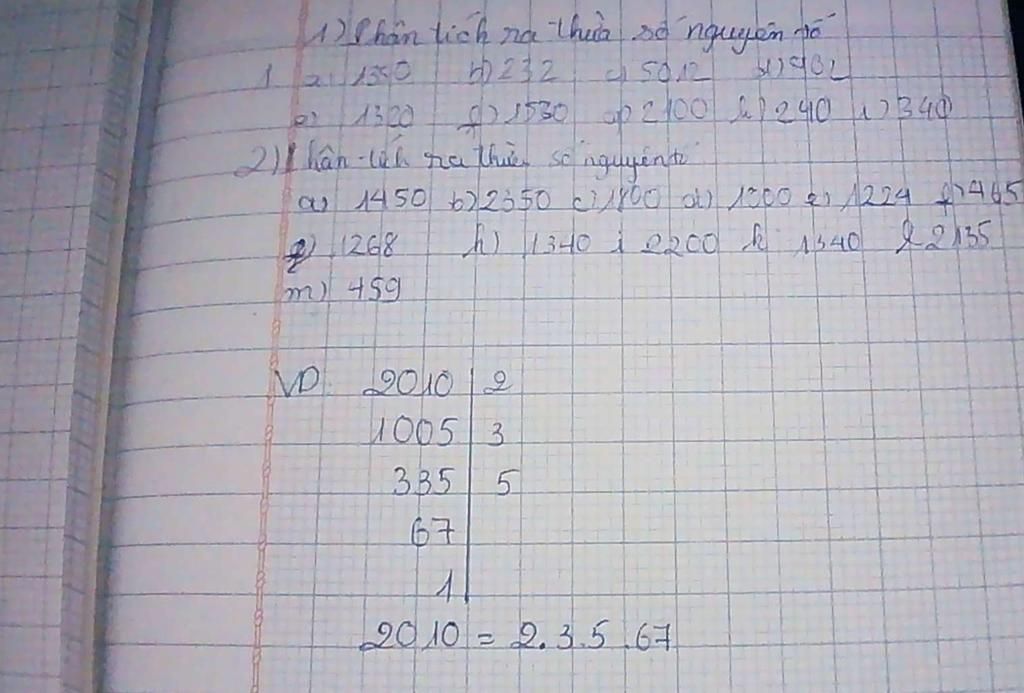 1) Phân tích ra thừa số nguyên tố
1 a) 1350 b) 232 c) 5012 d) 902
e) 1320 f) 1530 g) 2100 h) 240 i) 340
2) Phân tích ra thừa số nguyên tố
a) 1450 b) 2350 c) 1800 d) 1200 e) 1224 f) 465
g) 1268 h) 1340 i 2200 k 1340 l 2135
m) 459
VD 2010 2
1005 3
335 5
67
1
2010 = 2.3.5.67